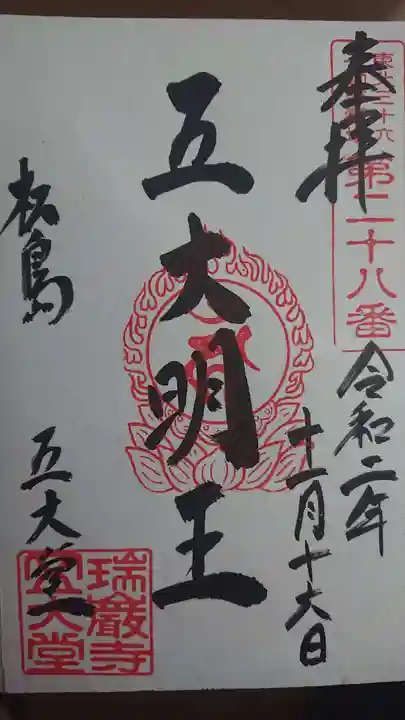 奉拝
東北三十六
第二十八番
令和二年
十一月十六日
五大明王
松島
五大堂
瑞巌寺
五大堂